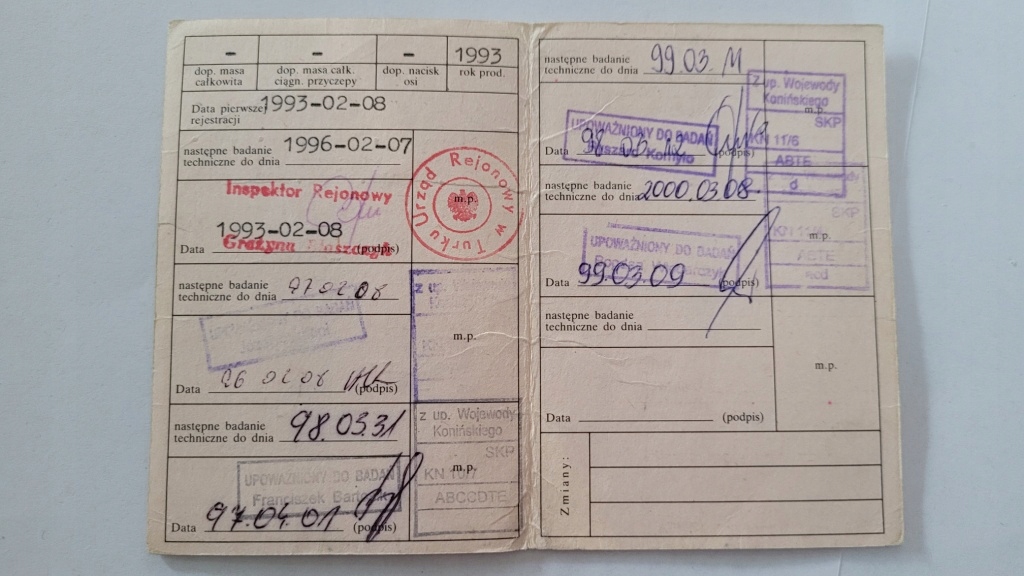 - - - 1993
dop. masa całkowita
dop. masa całk. ciągn. przyczepy
dop. nacisk osi
rok prod.
Data pierwszej 1993-02-08
rejestracji
następne badanie 1996-02-07
techniczne do dnia
Inspektor Rejonowy
Urząd Rejonowy w Turku
m.p.
1993-02-08
Data (podpis)
Grażyna
następne badanie
techniczne do dnia 97 02 08
z up. Wojewody
m.p.
Data 96 02 08 (podpis)
następne badanie
techniczne do dnia 98.03.31
z up. Wojewody
Konińskiego
SKP
m.p.
KN 10/7
ABCCDTE
UPOWAŻNIONY DO BADAŃ
Franciszek
Data 97.04.01 (podpis)
następne badanie
techniczne do dnia 99.03.11
Z up. Wojewody
Konińskiego
m.p.
SKP
KN 11/6
ABTE
UPOWAŻNIONY DO BADAŃ
Data 98 03 12 (podpis)
następne badanie
techniczne do dnia 2000.03.08
SKP
m.p.
ABTE
UPOWAŻNIONY DO BADAŃ
Data 99.03.09 (podpis)
następne badanie
techniczne do dnia
m.p.
Data (podpis)
Zmiany: